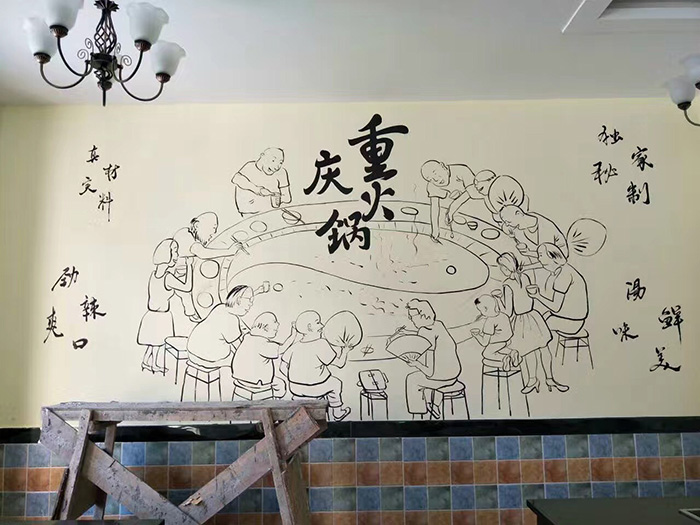 重庆火锅
真材实料
劲辣爽口
独家秘制
湯鲜味美